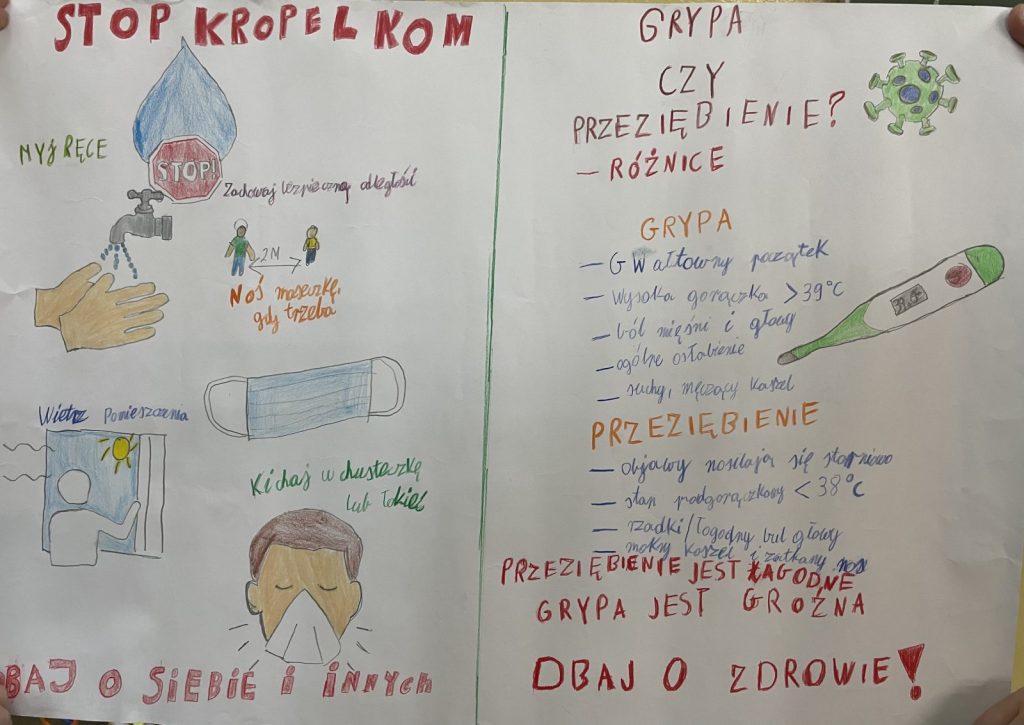 STOP KROPELKOM
MYJ RĘCE
STOP!
Zachowaj bezpieczną odległość
2M
Noś maseczkę,
gdy trzeba
Wietrz Pomieszczenia
Kichaj w chusteczkę
lub łokieć
BAJ O SIEBIĆ i iNNYCh
GRYPA
CZY
PRZEZIĘBIENIE?
— RÓŻNICE
GRYPA
— GWałtowny początek
— Wysoka gorączka >39°C
— ból mięśni i głowy
— ogólne osłabienie
— suchy, męczący kaszel
PRZEZIĘBIENIE
— objawy nasilają się stopniowo
— stan podgorączkowy <38°C
— rzadki/łagodny ból głowy
— mokry kaszel i zatkany nos
PRZEZIĘBIENIE JEST ŁAGODNE
GRYPA JEST GROŹNA
DBAJ O ZDROWIE!